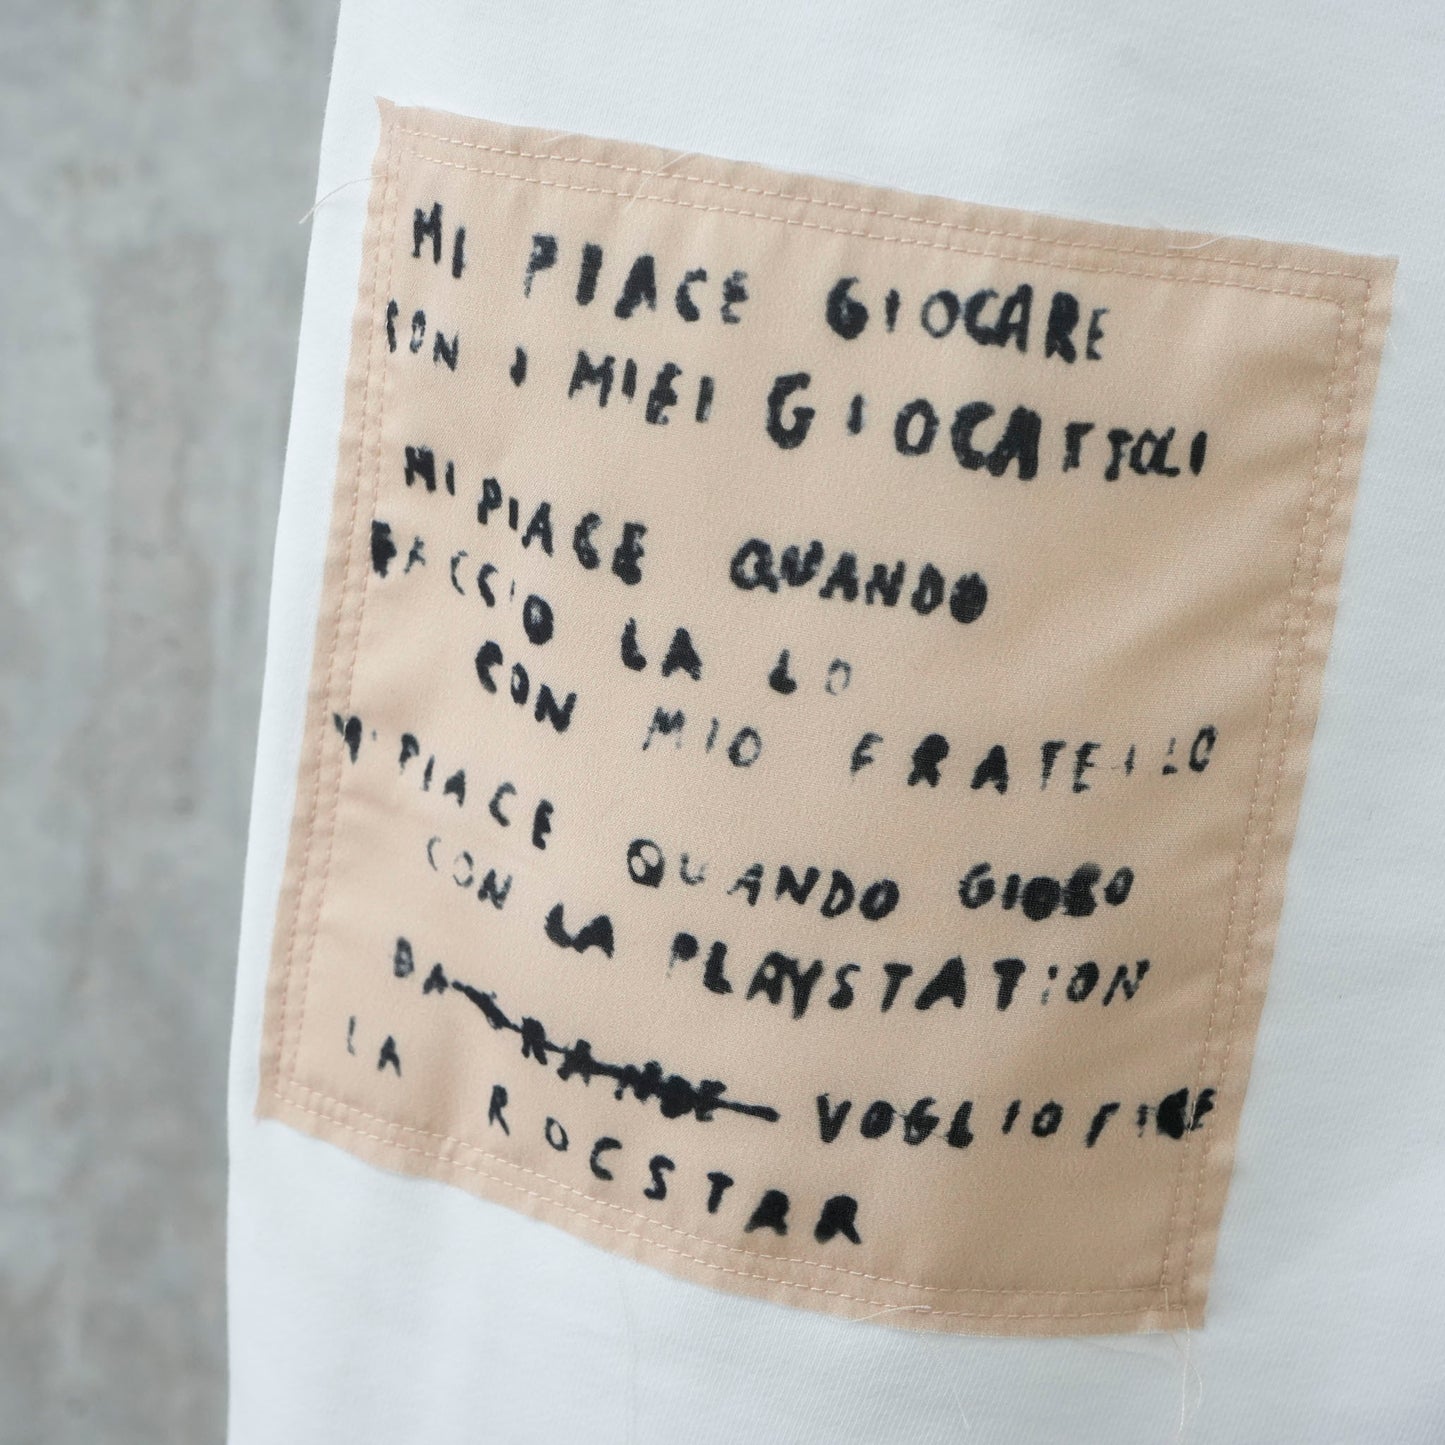 MI PIACE GIOCARE
CON I MIEI GIOCATTOLI
MI PIACE QUANDO
FACCIO LA LO
CON MIO FRATELLO
MI PIACE QUANDO GIOCO
CON LA PLAYSTATION
DA GRANDE VOGLIO FARE
LA ROCSTAR